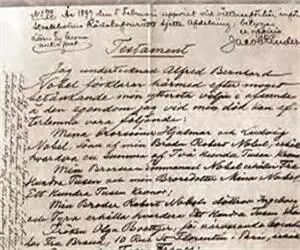 No 73. År 1897 den 5 Februari uppvist vid vittnesförhör inför
Stockholms Rådstufvurätts sjette Afdelning, betygar
ex officio
Testament
Jag undertecknad Alfred Bernhard
Nobel förklarar härmed efter moget
betänkande min yttersta vilja i afseende
å den egendom jag vid min död kan ef-
terlemna vara följande:
Mina Brorsöner Hjalmar och Ludvig
Nobel, söner af min Broder Robert Nobel, erhålla
hvardera en summa af Två Hundra Tusen Kronor
Min Brorson Emmanuel Nobel erhåller Tre
Hundra Tusen och min Brorsdotter Mina Nobel
Ett Hundra Tusen kronor;
Min Broder Robert Nobels döttrar Ingeborg
och Tyra erhålla hvardera Ett Hundra Tusen
Fröken Olga Boettger, för närvarande boende
10 Rue St Florentin, Paris,